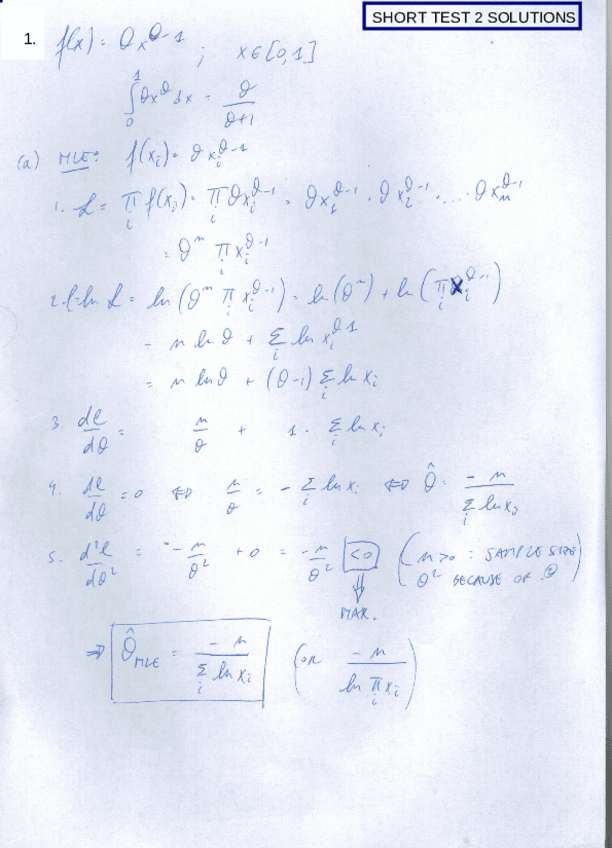 SHORT TEST 2 SOLUTIONS
1. f(x) = θx^{θ-1} ; x∈[0,1]
∫₀¹ θx^θ dx = θ/(θ+1)
(a) MLE: f(x_i) = θ x_i^{θ-1}
1. L = ∏_i f(x_i) = ∏_i θx_i^{θ-1} = θx_1^{θ-1} · θx_2^{θ-1} · .... θx_n^{θ-1}
= θ^n ∏_i x_i^{θ-1}
2. l = ln L = ln(θ^n ∏_i x_i^{θ-1}) = ln(θ^n) + ln(∏_i x_i^{θ-1})
= n ln θ + Σ_i ln x_i^{θ-1}
= n ln θ + (θ-1) Σ_i ln x_i
3. dl/dθ = n/θ + 1 · Σ_i ln x_i
4. dl/dθ = 0 ⇔ n/θ = - Σ_i ln x_i ⇔ θ̂ = -n/(Σ_i ln x_i)
5. d²l/dθ² = -n/θ² + 0 = -n/θ² <0 (n>0 : SAMPLE SIZE
θ² BECAUSE OF ②)
⇓
MAX.
⇒ θ̂_MLE = -n/(Σ_i ln x_i) (OR -n/(ln ∏_i x_i))